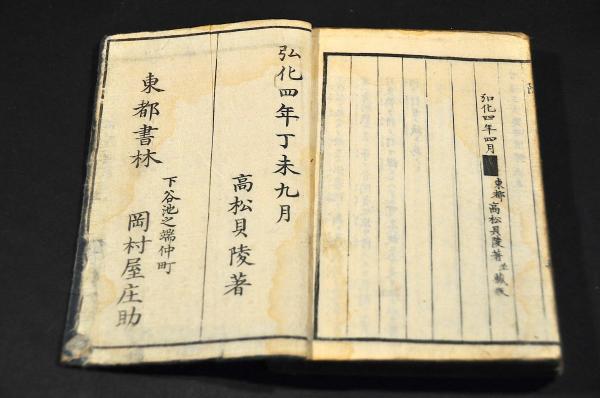 弘化四年四月
東都 高松貝陵著
弘化四年丁未九月
高松貝陵著
下谷池之端仲町
東都書林 岡村屋庄助